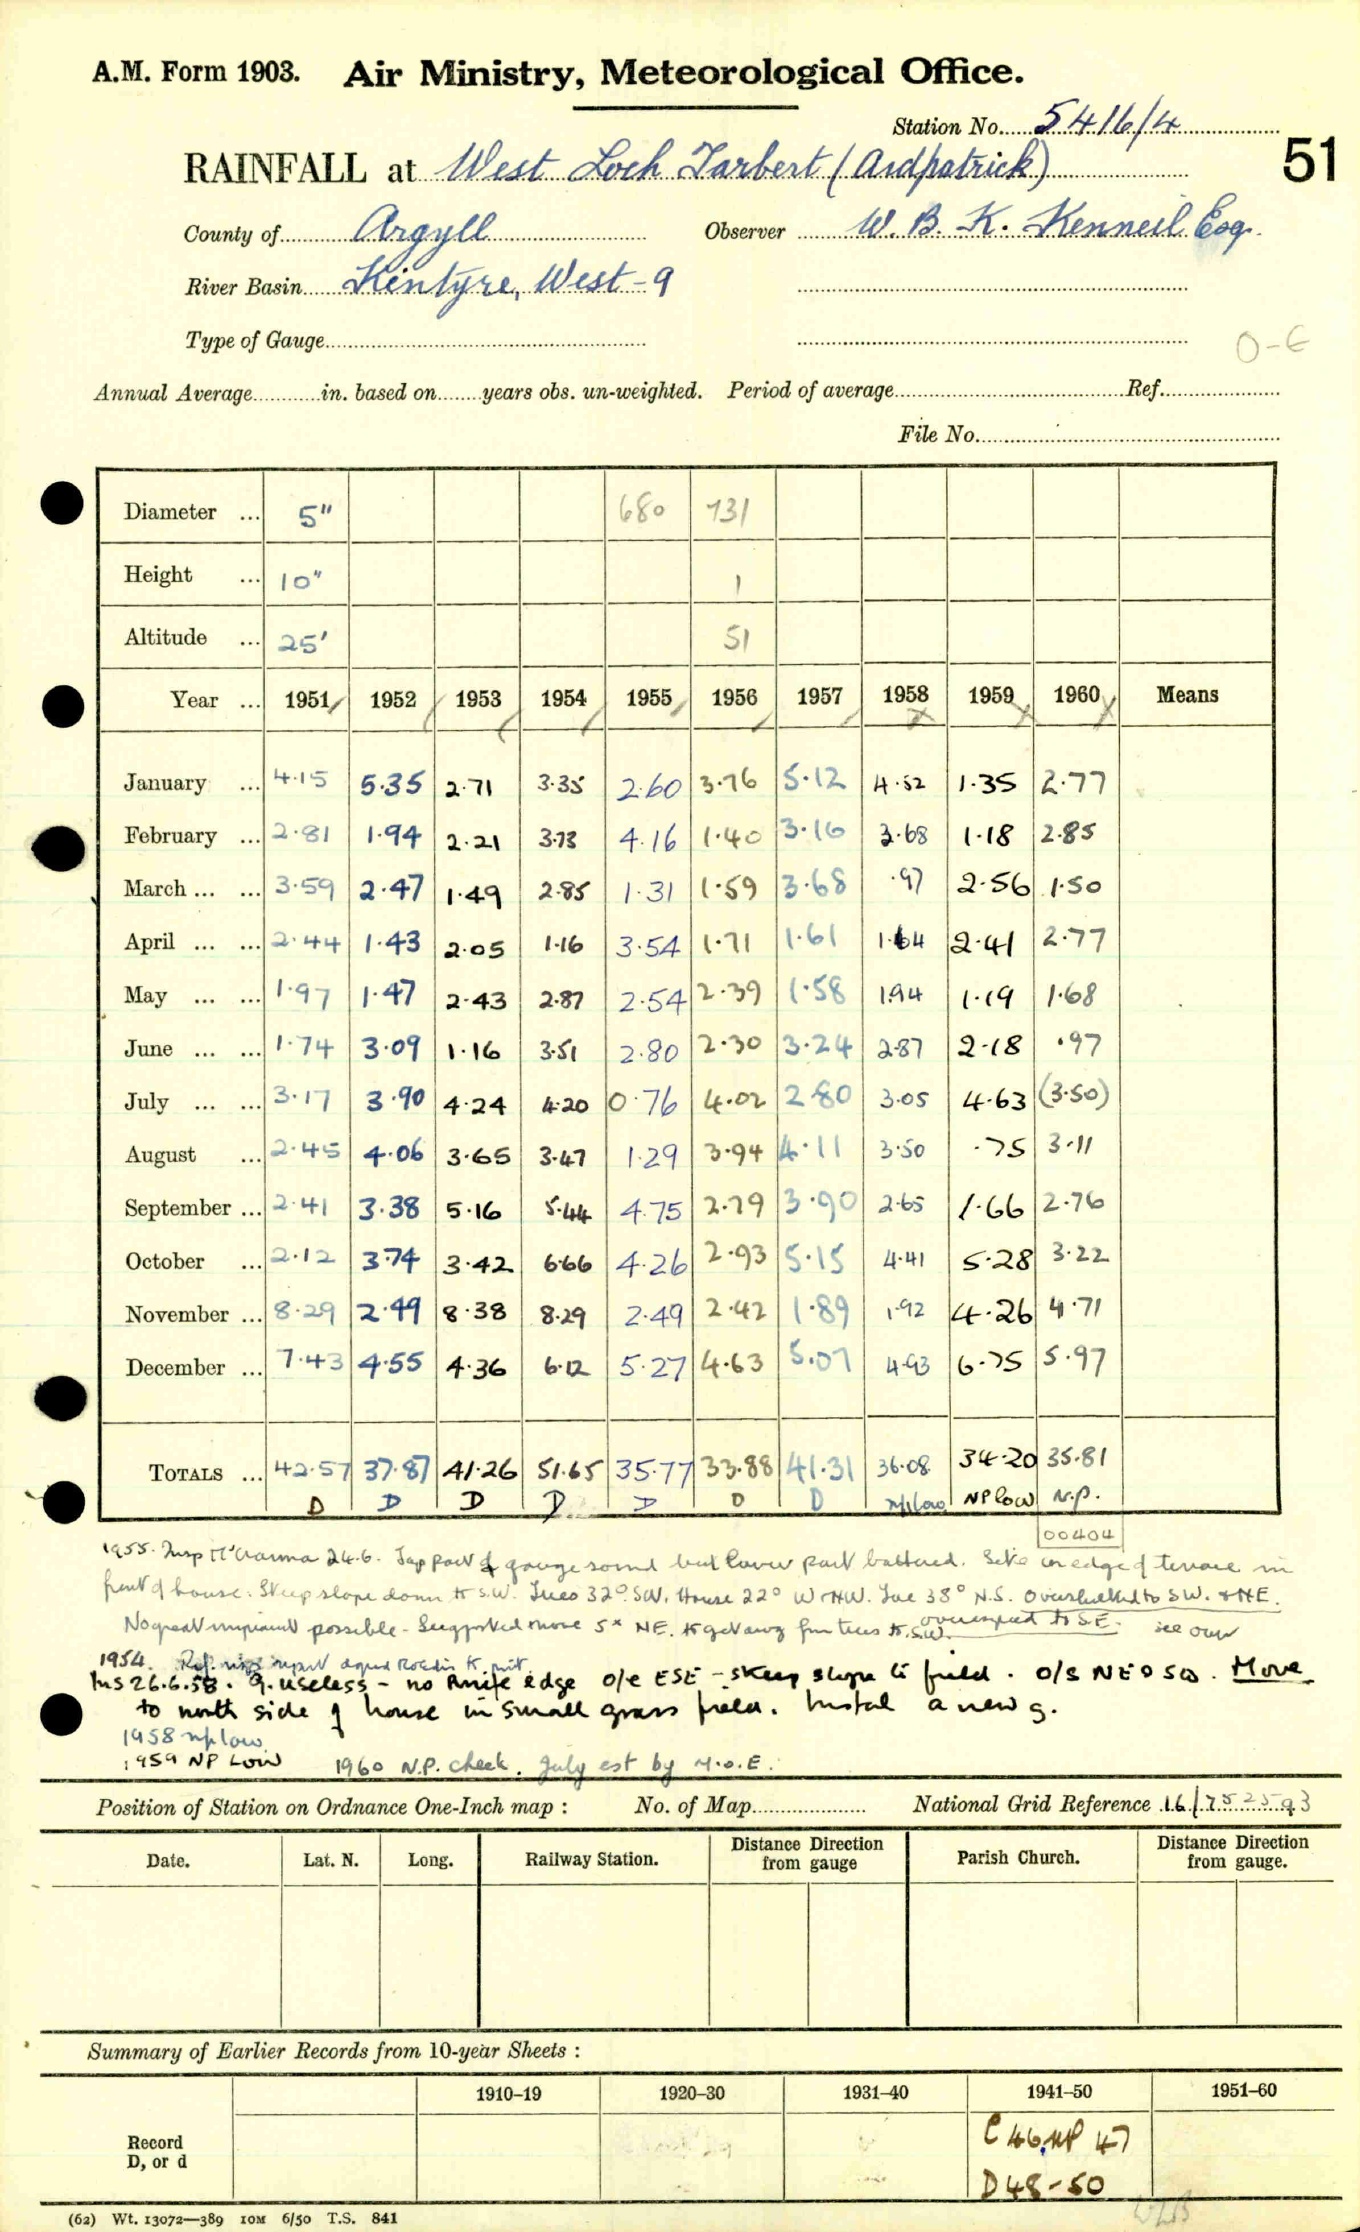 A.M. Form 1903. Air Ministry, Meteorological Office.
Station No. 5416/4
51
RAINFALL at West Loch Tarbert (Ardpatrick)
County of Argyll Observer W. B. K. Kenneil Esq.
River Basin Kintyre, West - 9
Type of Gauge
O-E
Annual Average in. based on years obs. un-weighted. Period of average Ref.
File No.
Diameter ... 5" 680 731
Height ... 10" 1
Altitude ... 25' 51
Year ... 1951 1952 1953 1954 1955 1956 1957 1958 1959 1960 Means
January ... 4.15 5.35 2.71 3.35 2.60 3.76 5.12 4.52 1.35 2.77
February ... 2.81 1.94 2.21 3.73 4.16 1.40 3.16 3.68 1.18 2.85
March ... ... 3.59 2.47 1.49 2.85 1.31 1.59 3.68 .97 2.56 1.50
April ... ... 2.44 1.43 2.05 1.16 3.54 1.71 1.61 1.64 2.41 2.77
May ... ... 1.97 1.47 2.43 2.87 2.54 2.39 1.58 1.94 1.19 1.68
June ... ... 1.74 3.09 1.16 3.51 2.80 2.30 3.24 2.87 2.18 .97
July ... ... 3.17 3.90 4.24 4.20 0.76 4.02 2.80 3.05 4.63 (3.50)
August ... 2.45 4.06 3.65 3.47 1.29 3.94 4.11 3.50 .75 3.11
September ... 2.41 3.38 5.16 5.44 4.75 2.79 3.90 2.65 1.66 2.76
October ... 2.12 3.74 3.42 6.66 4.26 2.93 5.15 4.41 5.28 3.22
November ... 8.29 2.49 8.38 8.29 2.49 2.42 1.89 1.92 4.26 4.71
December ... 7.43 4.55 4.36 6.12 5.27 4.63 5.07 4.93 6.75 5.97
TOTALS ... 42.57 37.87 41.26 51.65 35.77 33.88 41.31 36.08 34.20 35.81
D D D D D D D np low NP low N.P.
00404
1955. Insp 24.6. Top part of gauge sound but lower part battered. Site on edge of terrace in
front of house. Steep slope down to S.W. Trees 32° SW. House 22° W-NW. Tree 38° N.S. Oversheltered to SW. + NE.
No great improvement possible - Suggested move 5x NE. to get away from trees to S.W. overexposed to S.E. see over
1954.
Ins 26.6.58. g. useless - no knife edge o/e ESE - steep slope to field. o/s NE & SW. Move
to north side of house in small grass field. Instal a new g.
1958 np low
1959 NP Low 1960 N.P. check. July est by M.O.E.
Position of Station on Ordnance One-Inch map : No. of Map National Grid Reference 16/752593
Date. Lat. N. Long. Railway Station. Distance Direction from gauge Parish Church. Distance Direction from gauge.
Summary of Earlier Records from 10-year Sheets :
1910-19 1920-30 1931-40 1941-50 1951-60
Record D, or d
C 46 NP 47
D 48-50
(62) Wt. 13072—389 10M 6/50 T.S. 841